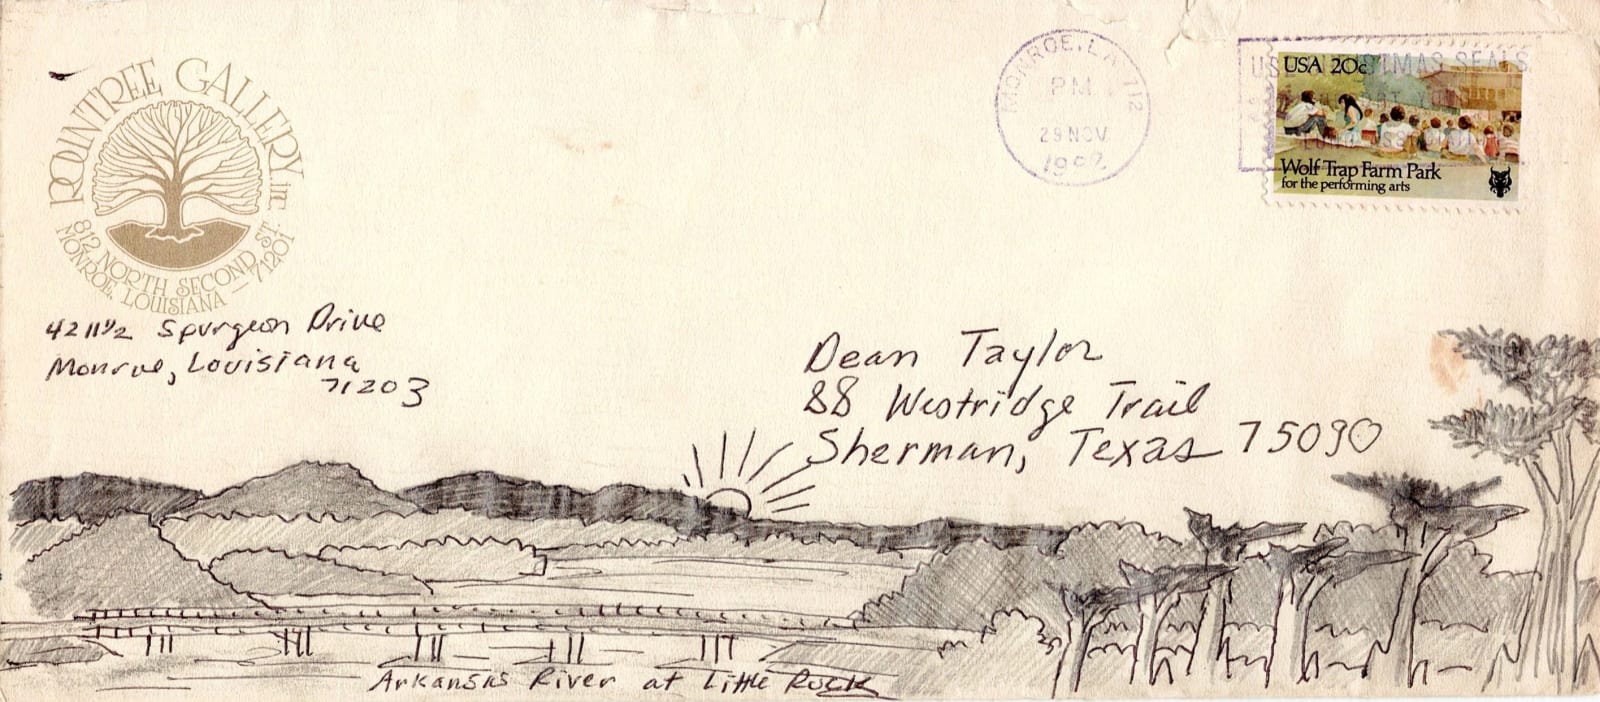 ROUNTREE GALLERY, inc.
812 NORTH SECOND ST.
MONROE, LOUISIANA — 71201
4211 1/2 Spurgeon Drive
Monroe, Louisiana
71203
MONROE, LA 712
PM
29 NOV
1982
USA 20c
Wolf Trap Farm Park
for the performing arts
Dean Taylor
88 Westridge Trail
Sherman, Texas 75090
Arkansas River at Little Rock